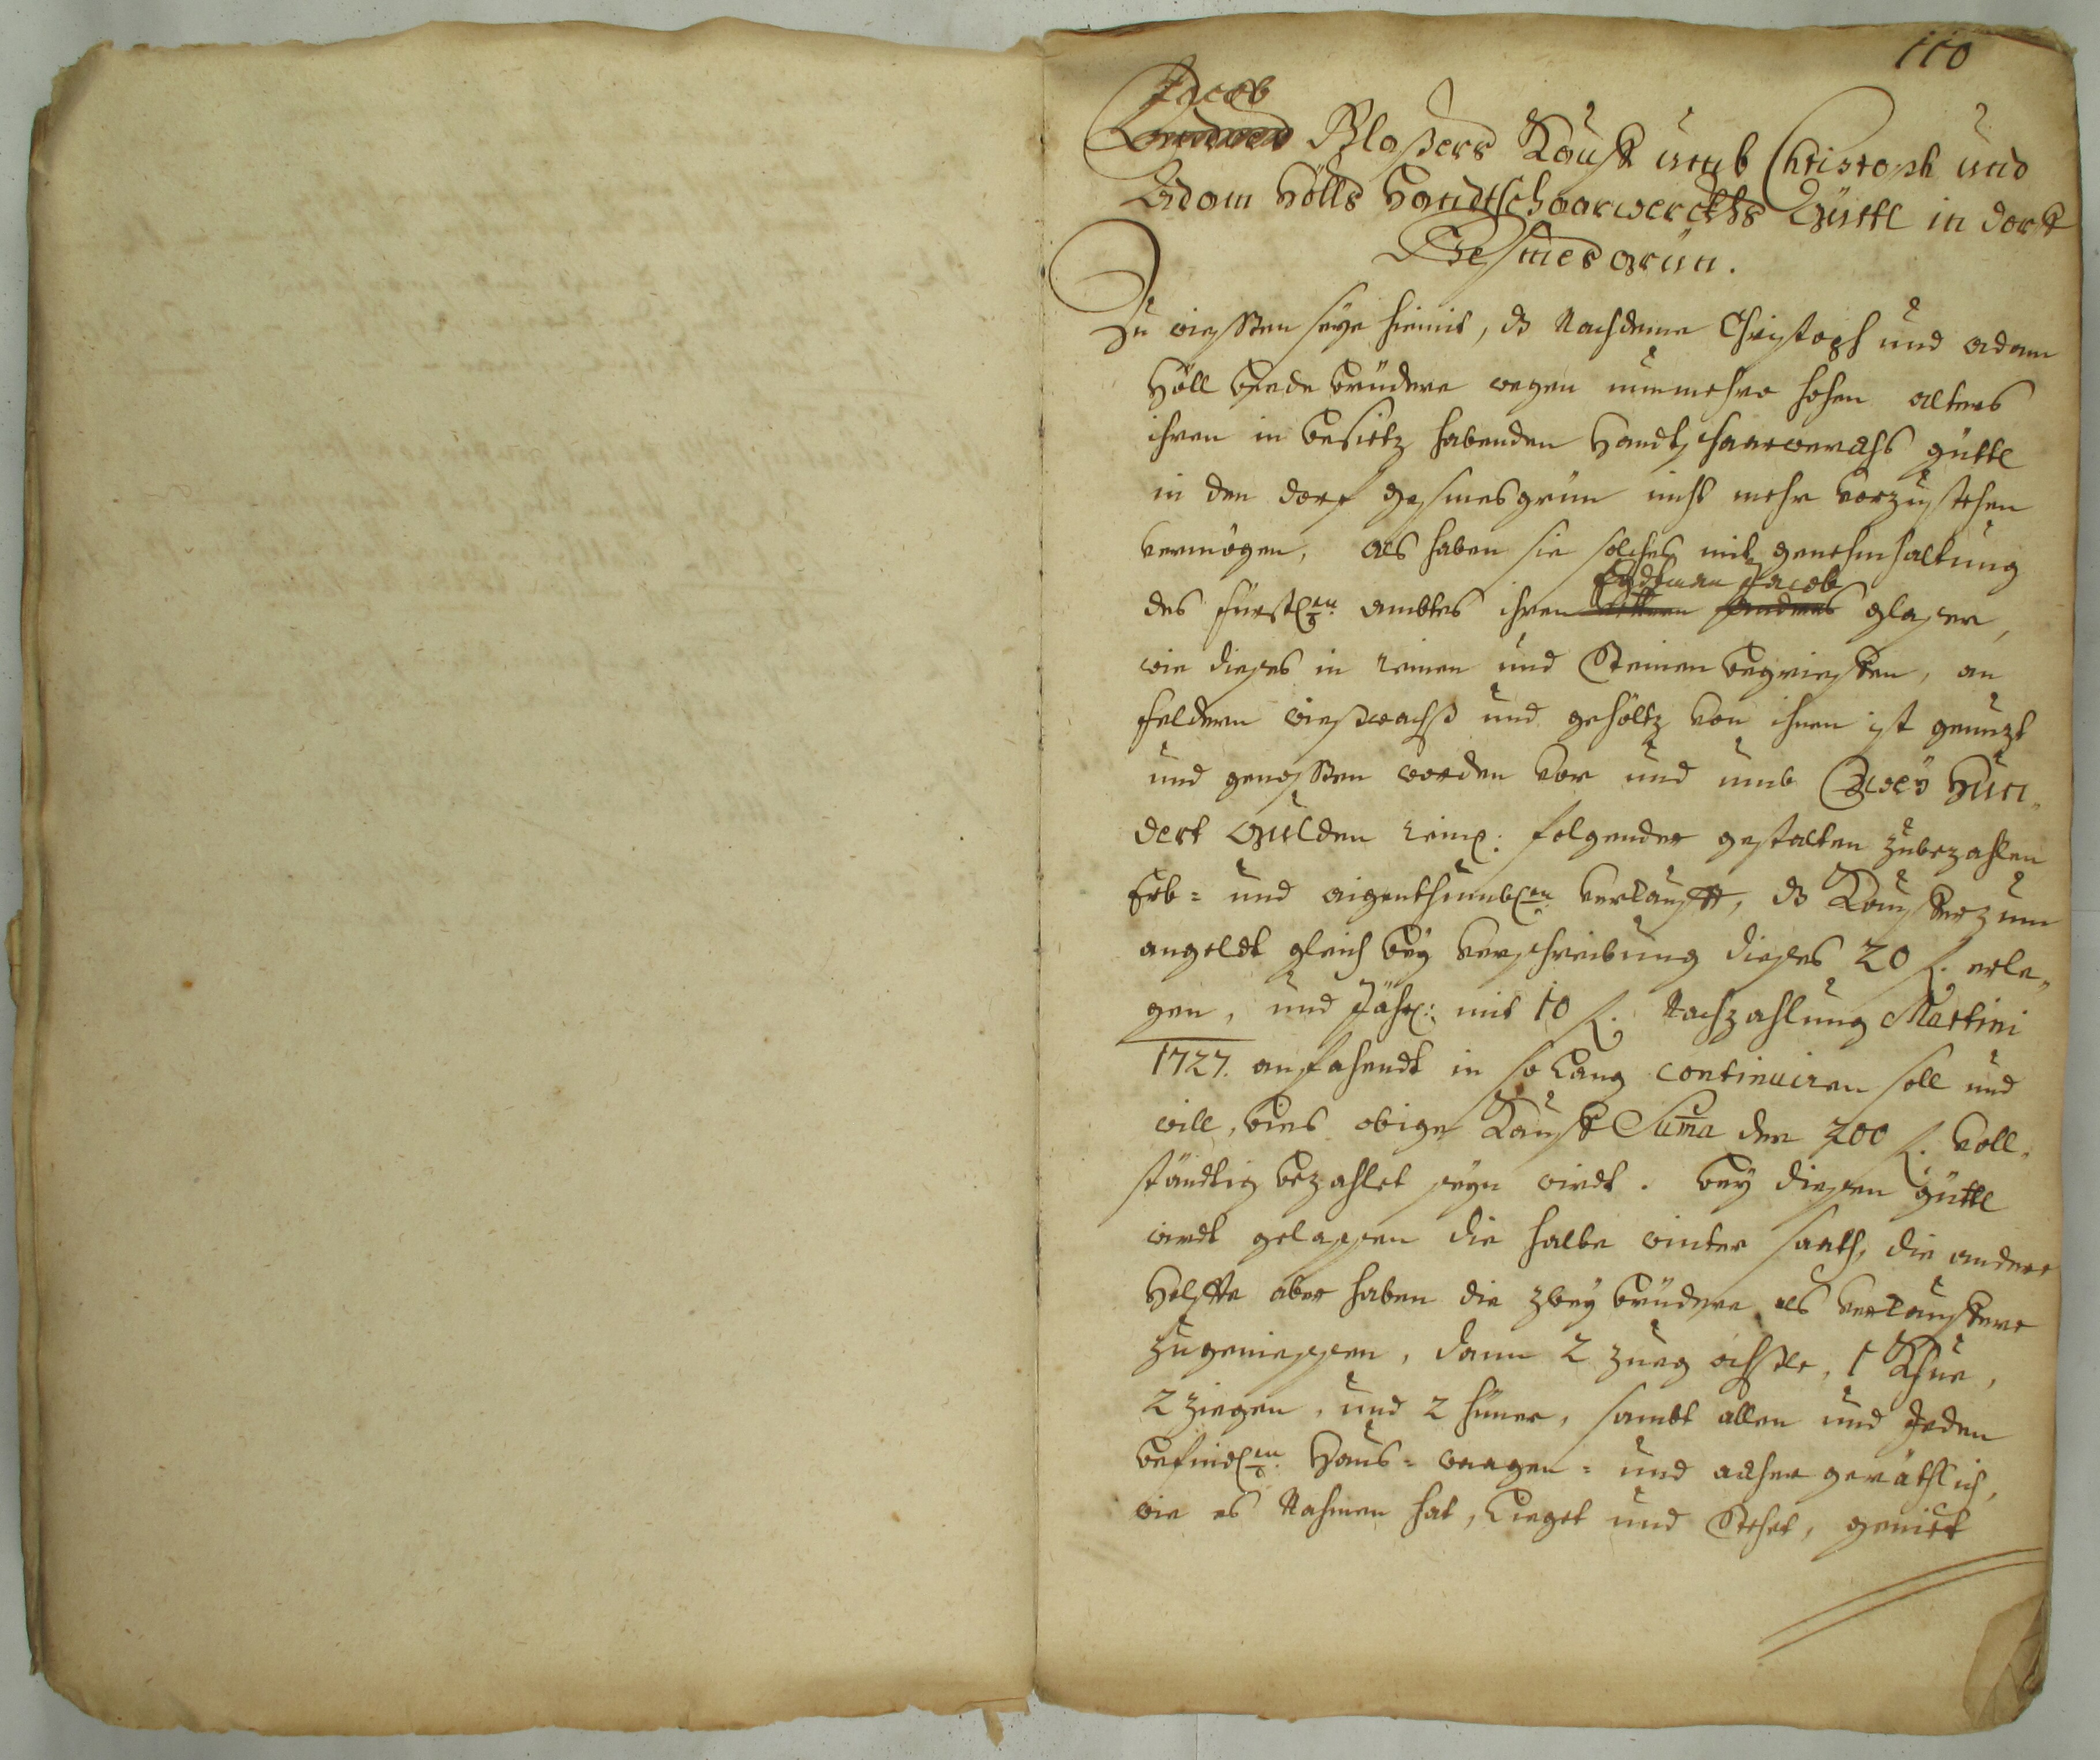 110
Jacob
Andreas Glaßers Kauff umb Christoph und
Adam Hölls Handtschaarwerckhs Güttl in dorff
Gesmesgrün.
Zu wießen seye hiemit, dz Nachdeme Christoph und adam
Höll beede brüdere wegen nunmehro hohen alters
ihren in besietz habenden Handtschaarwerckhs güttl
in den dorf gesmesgrün nicht mehr vorzustehen
vermögen, als haben sie solches mit genehmhaltung
Eydtman Jacob
des fürstl:en ambtes ihren Vettern Andreas glaser,
wie dieses in reinen und Steinen begrieffen, an
feldern wießwachß und gehöltz von ihnen ist genuzt
und genossen worden vor und umb Zweÿ Hun„
dert Gulden reinl: folgender gestalten zubezahlen
Erb= und aigenthumbl:en verkaufft, dz Kauffer zum
angeldt gleich beÿ verschreibung dieses 20 f. erle„
gen, und Jährl: mit 10 f. Nachzahlung Martini
1727. anfahendt in so Lang continuiren soll und
will, bies obige Kauff Suma der 200 f. voll„
ständig bezahlet seyn wirdt. beÿ diesen güttl
wirdt gelassen die halbe winter saath, die andere
Helffte aber haben die zweÿ brüdere als verkauffere
zugeniessen, dann 2 zueg öchßle, 1 Khue,
2 ziegen, und 2 hüner, sambt allen und Jeden
befindl:en Haus= waagen= und ackher geräthlich,
wie es Nahmen hat, Lieget und Stehet, geniet